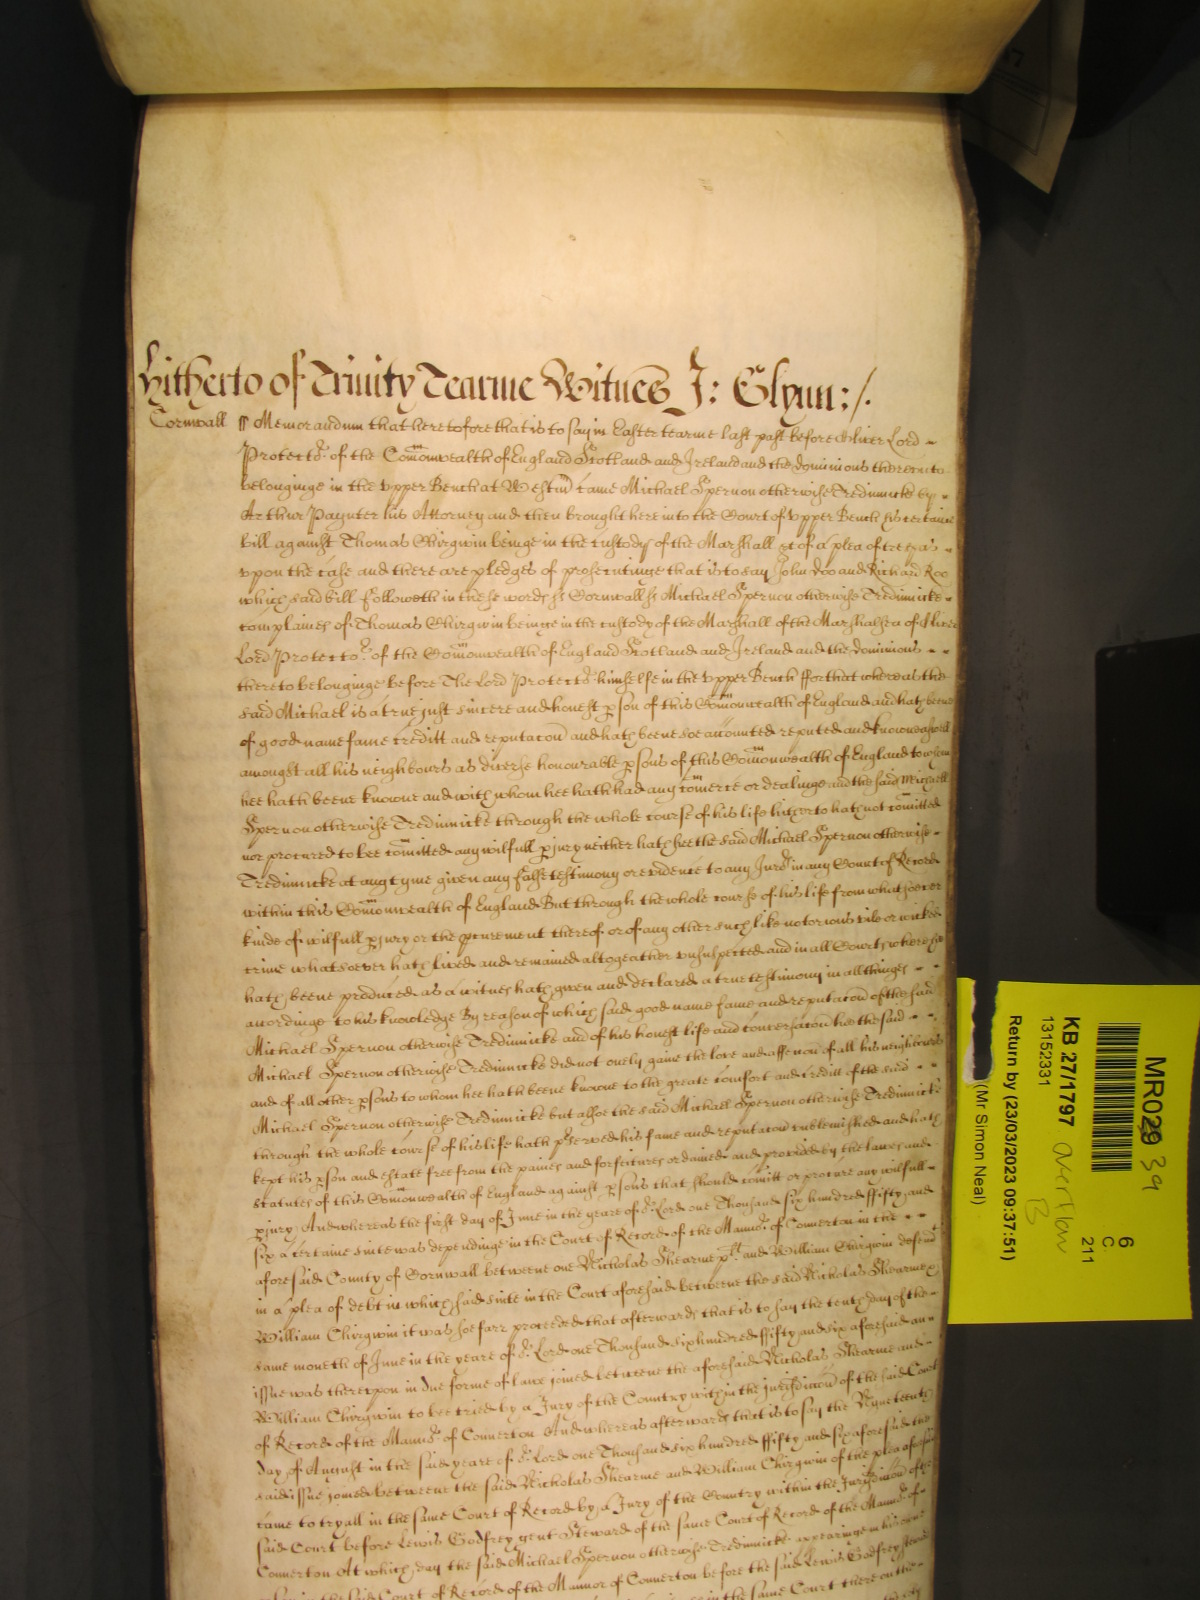 Hitherto of Trinity Tearme Witnes J: Glynn:/.
Cornwall ss Memorandum that heretofore that is to say in Easter tearme last past before Oliver Lord
Protector of the Com̅onwealth of England Scotland and Ireland and the dominions thereunto
belonginge in the upper Bench at Westm̅ came Michael Spernon otherwise Tredinnicke by
Arthur Paynter his Attorney and then brought here into the Court of upper Bench his certaine
bill against Thomas Chirgwin beinge in the custody of the Marshall &c of a plea of trespas
upon the case and there are pledges of prosecutinge that is to say John Doo and Richard Roo
which said bill followeth in these words ss Cornwall ss Michael Spernon otherwise Tredinnicke
complaines of Thomas Chirgwin beinge in the custody of the Marshall of the Marshalsea of Oliver
Lord Protector of the Com̅onwealth of England Scotland and Ireland and the dominions
thereto belonginge before The Lord Protector himselfe in the upper Bench ffor that whereas the
said Michael is a true just sincere and honest p̱son of this Com̅onwealth of England and hath beene
of good name fame creditt and reputac̅on and hath beene soe accounted reputed and knowne aswell
amongst all his neighbours as diverse honourable p̱sons of this Com̅onwealth of England to whom
hee hath beene knowne and with whom hee hath had any com̅erce or dealinge and the said Michaell
Spernon otherwise Tredinnicke through the whole course of his life hitherto hath not com̅itted
nor procured to bee com̅itted any wilfull p̱jury neither hath hee the said Michael Spernon otherwise
Tredinnicke at any tyme given any false testimony or evidence to any Jurd in any Court of Record
within this Com̅onwealth of England But through the whole course of his life from whatsoever
kinde of wilfull p̱jury or the p̱curement thereof or of any other such like notorious vile or wicked
crime whatsoever hath lived and remained altogeather unsuspected and in all Courts where hee
hath beene produced as a witnes hath given and declared a true testimony in all thinges
accordinge to his knowledge By reason of which said good name fame and reputac̅on of the said
Michael Spernon otherwise Tredinnicke and of his honest life and conversac̅on hee the said
Michael Spernon otherwise Tredinnicke did not onely gaine the love and affecc̅on of all his neighbours
and of all other p̱sons to whom hee hath beene knowne to the greate comfort and creditt of the said
Michael Spernon otherwise Tredinnicke but alsoe the said Michael Spernon otherwise Tredinnicke
through the whole course of his life hath p̱served his fame and reputac̅on unblemished and hath
kept his p̱son and estate free from the paines and forfeitures ordained and provided by the lawes and
statutes of this Com̅onwealth of England against p̱sons that should com̅itt or procure any wilfull
p̱jury And whereas the first day of June in the yeare of or Lord one Thousand six hundred ffifty and
six a certaine suite was dependinge in the Court of Record of the Mannor of Connerton in the
aforesaid County of Cornwall betweene one Nicholas Shearme plt and William Chirgwin defendt
in a plea of debt in which said suite in the Court aforesaid betweene the said Nicholas Shearme &
William Chirgwin it was soe farr proceeded that afterwards that is to say the tenth day of the
same moneth of June in the yeare of or Lord one Thousand six hundred ffifty and six aforesaid an
issue was thereupon in due forme of lawe joined betweene the aforesaid Nicholas Shearme and
William Chirgwin to bee tried by a Jury of the Country within the jurisdicc̅on of the said Court
of Record of the Mannor of Connerton And whereas afterwards that is to say the Nyneteenth
day of August in the said yeare of or Lord one Thousand six hundred ffifty and six aforesaid the
said issue joined betweene the said Nicholas Shearme and William Chirgwin of the plea aforesaid
came to tryall in the same Court of Record by a Jury of the Country within the Jurisdicc̅on of the
said Court before Lewis Godfrey gent Steward of the same Court of Record of the Mannor of
Connerton At which day the said Michael Spernon otherwise Tredinnicke appearinge in his owne
in the said Court of Record of the Mannor of Connerton before the said Lewis Godfrey
in the same Court there
MR029 39
6
C.
211
KB 27/1797 overflow
B
13152331
Return by (23/03/2023 09:37:51)
(Mr Simon Neal)